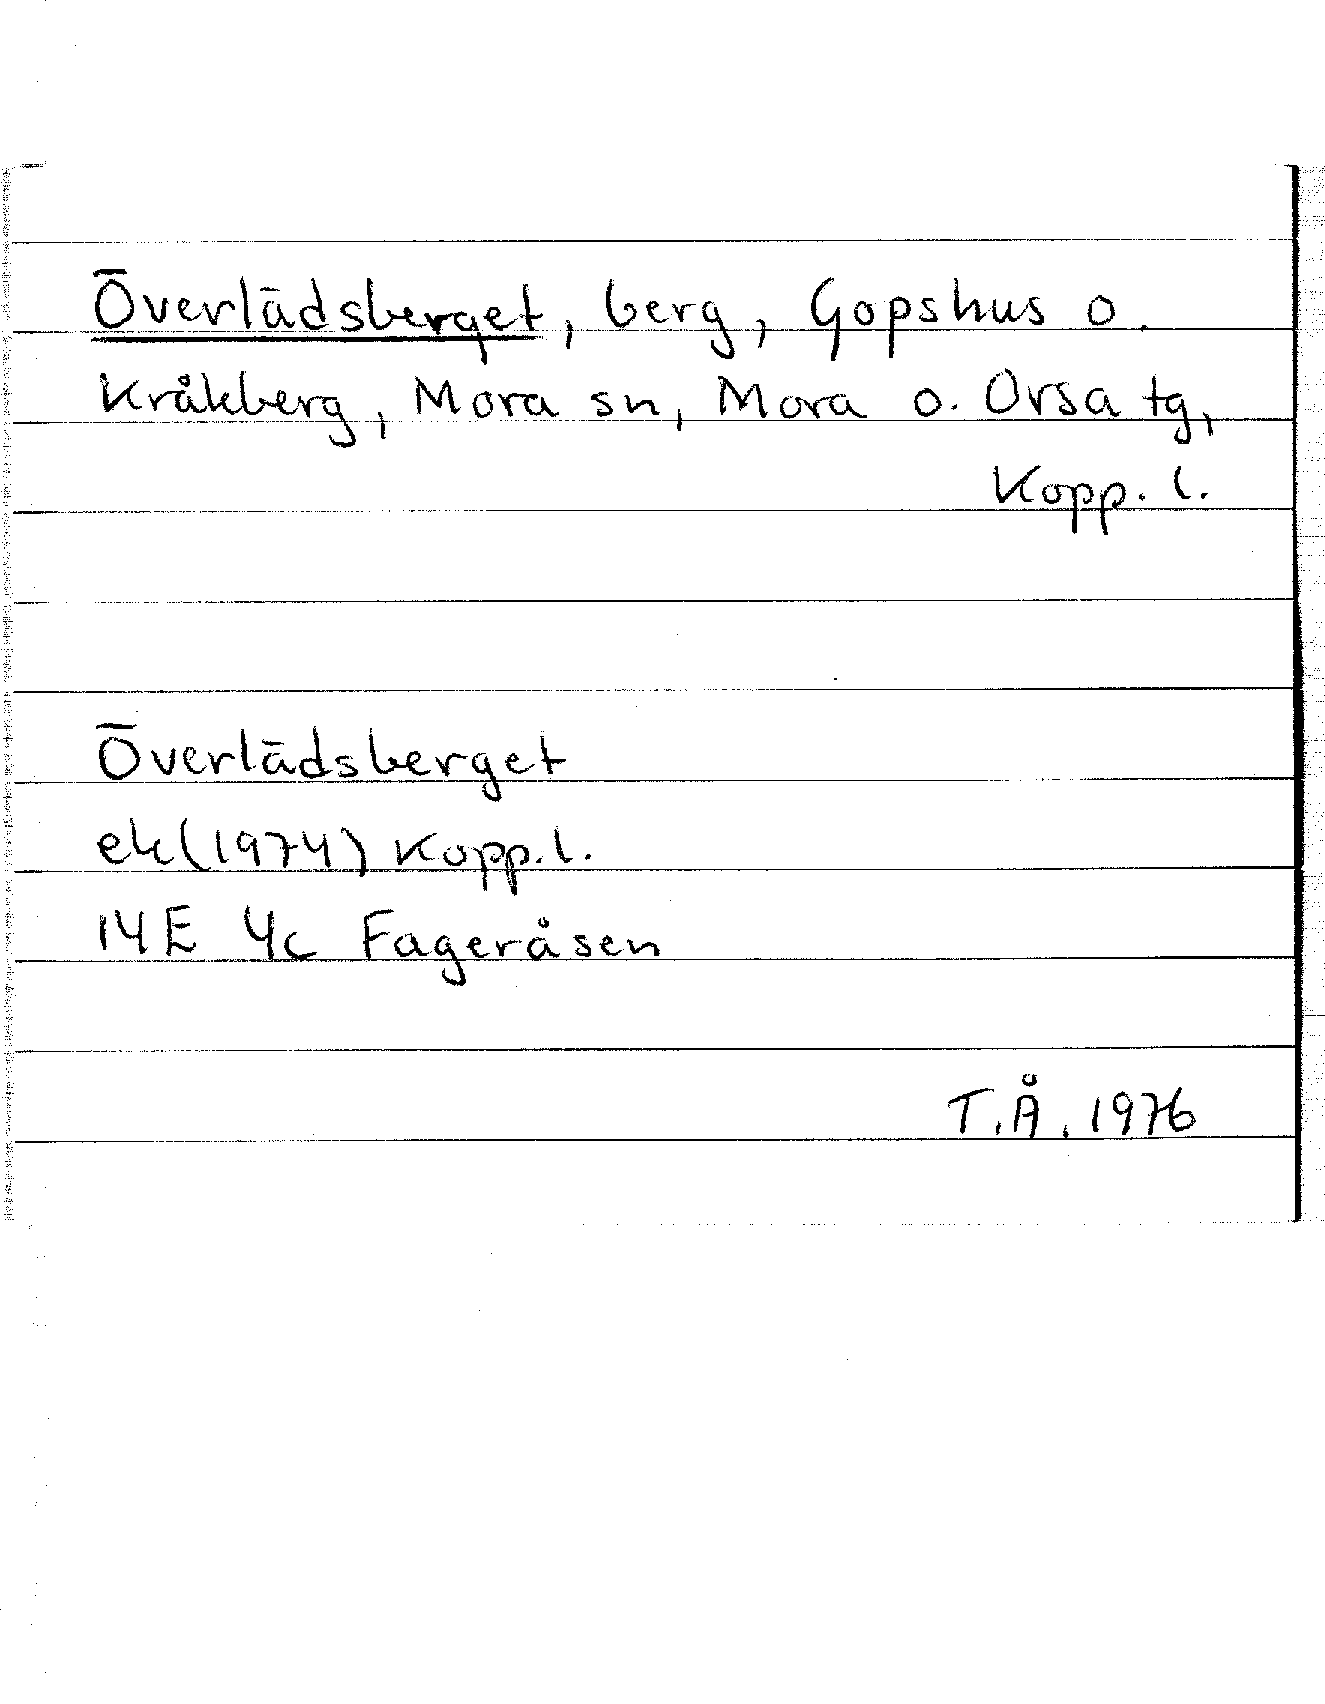 Överlädsberget, berg, Gopshus o.
Kråkberg, Mora sn, Mora o. Orsa tg,
Kopp. l.
Överlädsberget
ek(1974) Kopp. l.
14E 4c Fageråsen
T.Å. 1976